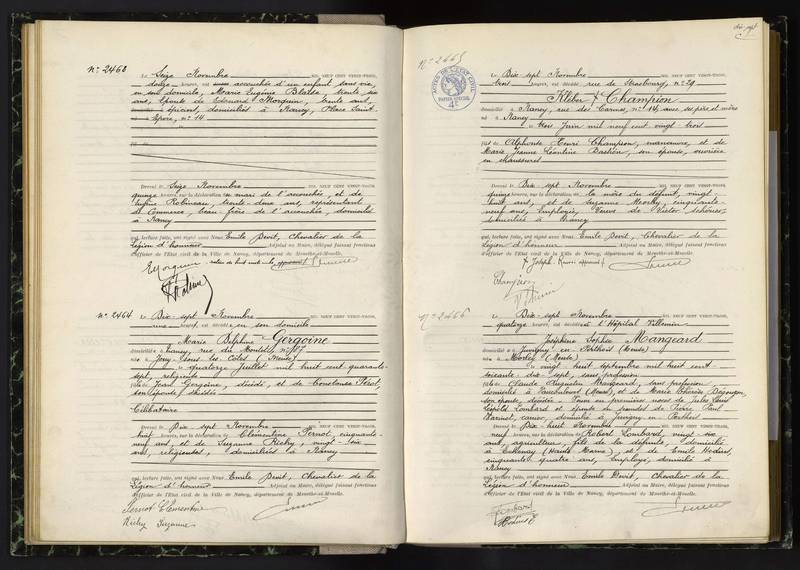 N° 2463
Le Seize Novembre MIL NEUF CENT VINGT-TROIS,
douze heures, est accouchée d'un enfant sans vie,
en son domicile, Marie Eugénie Blaise, trente six
ans, épouse de Edouard Morquin, trente ans,
épicier, domiciliés à Nancy, Place Saint
Epvre, n° 14
Dressé le Seize Novembre MIL NEUF CENT VINGT-TROIS,
quinze heures, sur la déclaration du mari de l'accouchée, et de
Robineau, trente deux ans, représentant
de Commerce, beau frère de l'accouchée, domicilié
à Nancy
qui, lecture faite, ont signé avec Nous Emile Devit, Chevalier de la
Légion d'honneur Adjoint au Maire, délégué faisant fonctions
d'officier de l'Etat civil de la Ville de Nancy, département de Meurthe-et-Moselle.
N° 2464
Le Dix-sept Novembre MIL NEUF CENT VINGT-TROIS,
une heure, est décédée, en son domicile
Marie Delphine Gergoine
domiciliée à Nancy, rue du Montet, n°
née à Jouy sous les Côtes (Meuse)
le quatorze Juillet mil huit cent quarante
sept, religieuse
fille de Jean Gergoine, décédé, et de Constance Pérot
son épouse, décédée
Célibataire
Dressé le Dix sept Novembre MIL NEUF CENT VINGT-TROIS,
huit heures, sur la déclaration de Clémentine Pernot, cinquante
neuf ans, et de Suzanne Richy, vingt six
ans, religieuses, domiciliées à Nancy
qui, lecture faite, ont signé avec Nous Emile Devit, Chevalier de la
Légion d'honneur Adjoint au Maire, délégué faisant fonctions
d'officier de l'Etat civil de la Ville de Nancy, département de Meurthe-et-Moselle.
Pernot Clémentine
Richy Suzanne
dix-sept
N° 2465
Le Dix-sept Novembre MIL NEUF CENT VINGT-TROIS,
trois heures, est décédé rue de Strasbourg, n° 29
Kléber Champion
domicilié à Nancy, rue des Carmes, n° 14, avec ses père et mère
né à Nancy
le trois Juin mil neuf cent vingt trois
fils de Alphonse Henri Champion, manoeuvre, et de
Marie Jeanne Léontine Bastien, son épouse, ouvrière
en chaussures
Dressé le Dix sept Novembre MIL NEUF CENT VINGT-TROIS,
quinze heures, sur la déclaration de la mère du défunt, vingt
huit ans, et de Suzanne cinquante
neuf ans, employée, Veuve de Victor
domiciliées à Nancy
qui, lecture faite, ont signé avec Nous Emile Devit, Chevalier de la
Légion d'honneur Adjoint au Maire, délégué faisant fonctions
d'officier de l'Etat civil de la Ville de Nancy, département de Meurthe-et-Moselle.
N° 2466
Le Dix-sept Novembre MIL NEUF CENT VINGT-TROIS,
quatorze heures, est décédée à l'Hôpital Villemin
Joséphine Sophie Mangeard
domiciliée à Juvigny en Perthois (Meuse)
née à Morley (Meuse)
le vingt huit septembre mil huit cent
soixante dix sept, sans profession
fille de Claude Augustin Mangeard, sans profession,
domicilié à Vaucouleurs (Meuse), et de Marie Thérèse
son épouse, décédée - Veuve en premières noces de Jules Louis
Lombard et épouse en secondes de Pierre Paul
domicilié à Juvigny en Perthois
Dressé le Dix-huit Novembre MIL NEUF CENT VINGT-TROIS,
neuf heures, sur la déclaration de Robert Lombard, vingt six
ans, agriculteur, fils de la défunte, domicilié
à (Haute Marne), et de Emile
cinquante quatre ans, employé, domicilié à
Nancy
qui, lecture faite, ont signé avec Nous Emile Devit, Chevalier de la
Légion d'honneur Adjoint au Maire, délégué faisant fonctions
d'officier de l'Etat civil de la Ville de Nancy, département de Meurthe-et-Moselle.